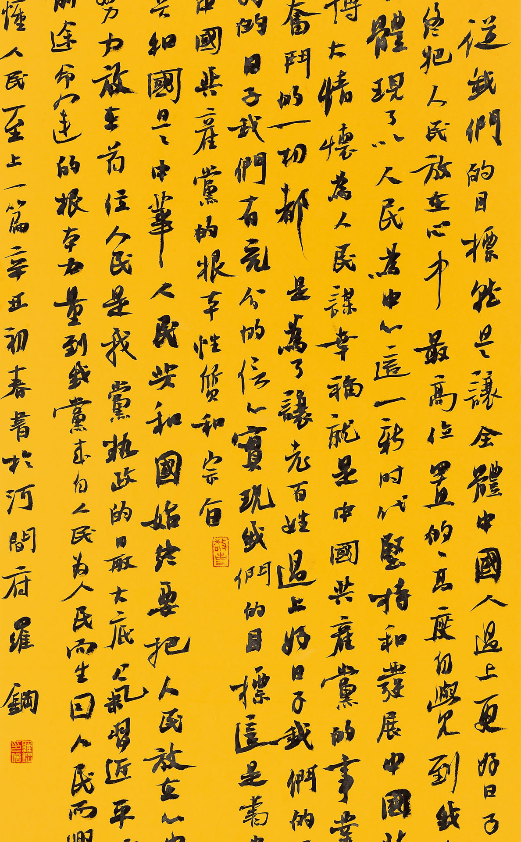 從我們的目標就是讓全體中國人過上更好日子
終把人民放在心中最高位置的高度自覺到我
體現了以人民為中心這一新时代堅持和發展中國
博大情懷為人民謀幸福就是中國共產黨的事業
奮鬥的一切都是為了讓老百姓過上好日子我們的
的的日子我們有充分的信心實現我們的目標這是
中國共產黨的根本性質和宗旨
共和國是中華人民共和國始終要把人民放在心中
努力放在首位人民是我黨執政的最大底气習近平
前途命运的根本力量到我黨来自人民为人民而生因人民而興
懂人民至上一篇辛丑初春書於河間府羅鋼